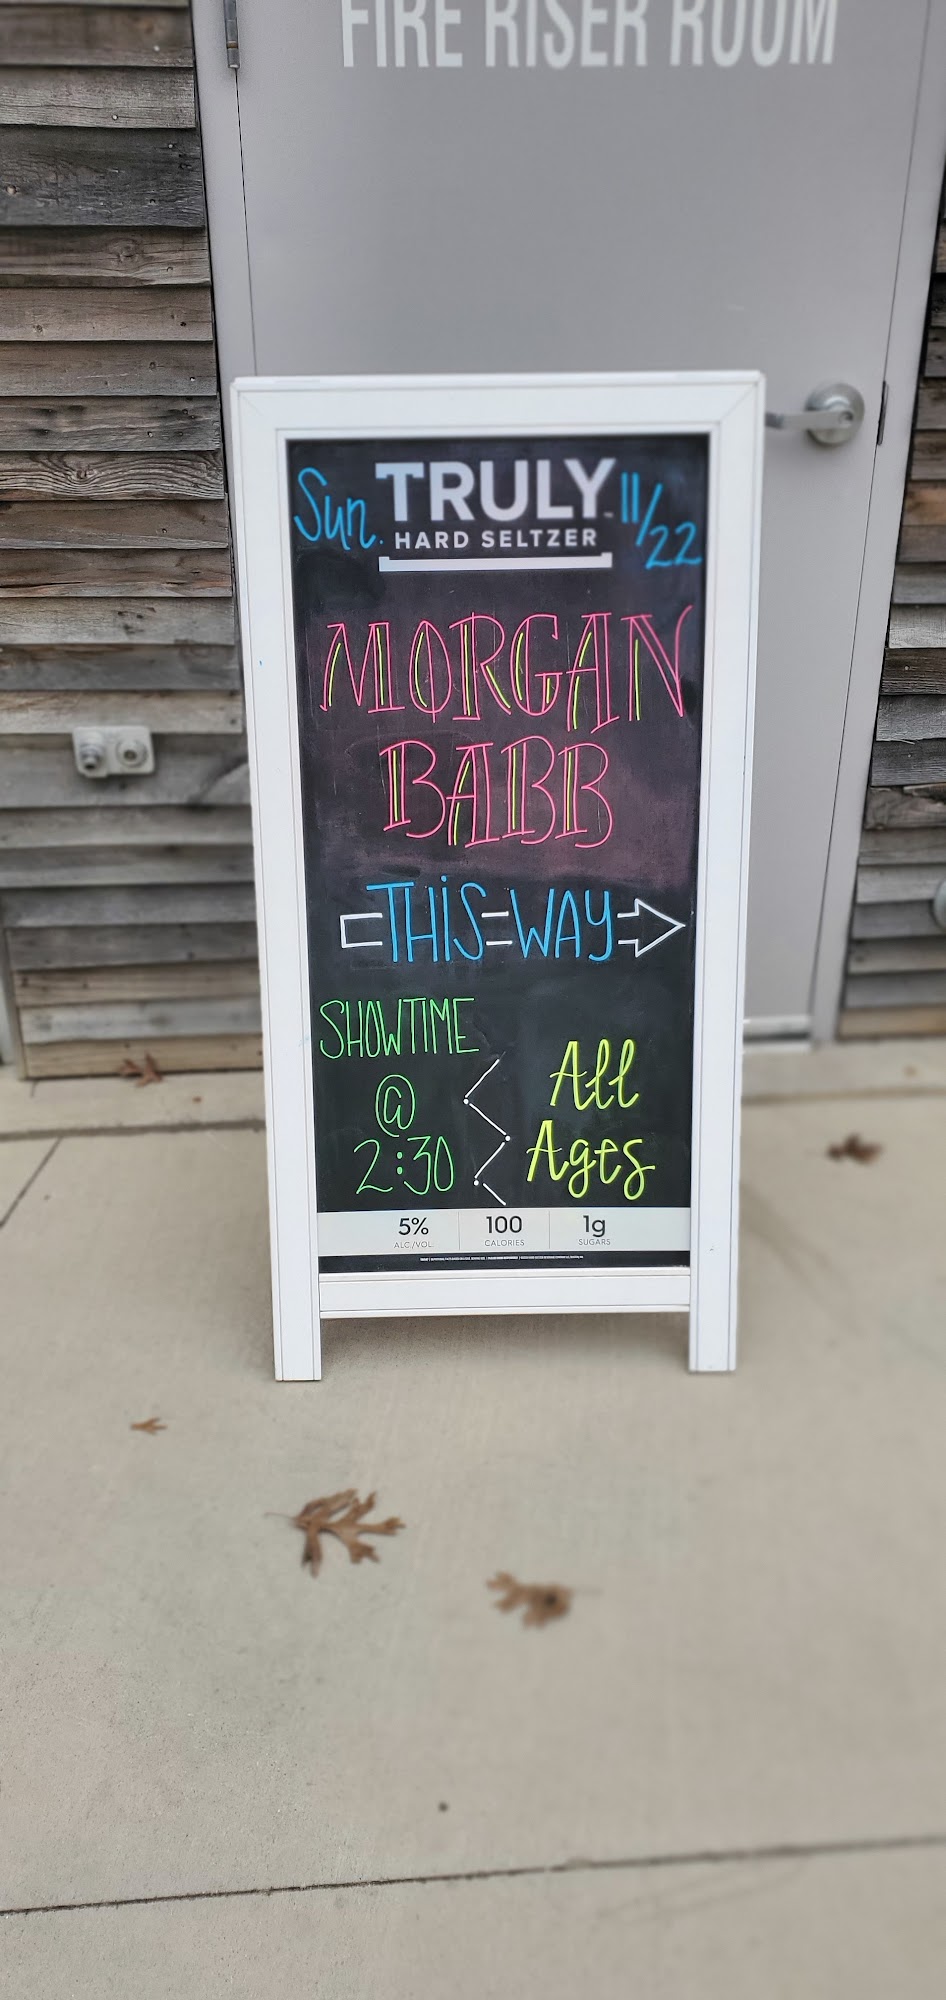 FIRE RISER ROOM
Sun. TRULY 11/22
HARD SELTZER
MORGAN
BABB
THIS WAY
SHOWTIME
@
2:30
All
Ages
5% 100 1g
ALC./VOL. CALORIES SUGARS